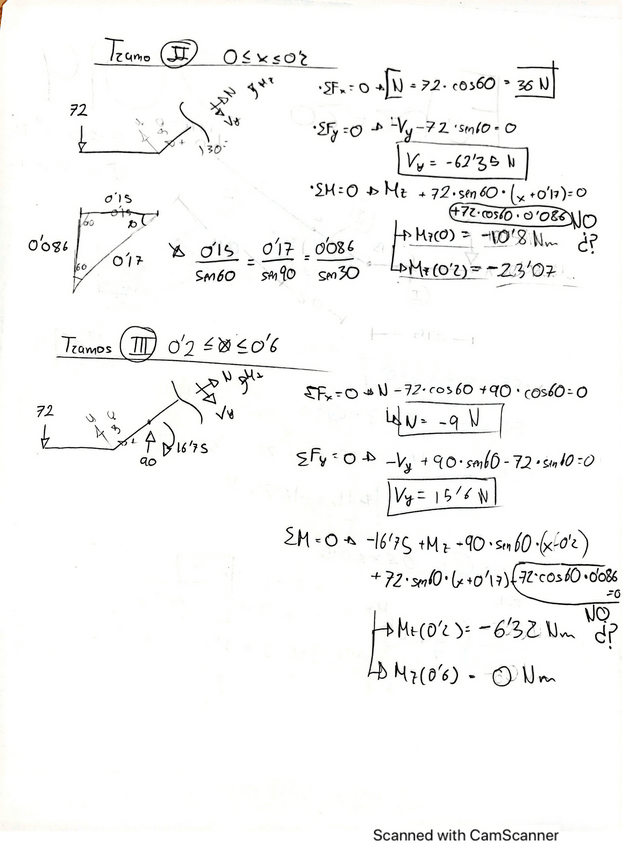 Tramo II 0 ≤ x ≤ 0'2
·ΣFx = 0 → N = 72·cos60 = 36 N
72
N
Mz
Vy
30º
·ΣFy = 0 → -Vy - 72·sen60 = 0
Vy = -62'35 N
·ΣM = 0 → Mz + 72·sen60·(x+0'17) = 0
+72·cos60·0'086 NO
¿?
→ Mz(0) = -10'8 Nm
→ Mz(0'2) = -23'07
0'15
0'15
60
0'086
60
0'17
0'15/sen60 = 0'17/sen90 = 0'086/sen30
Tramos III 0'2 ≤ x ≤ 0'6
72
N
Mz
Vy
90
16'75
ΣFx = 0 → N - 72·cos60 + 90·cos60 = 0
→ N = -9 N
ΣFy = 0 → -Vy + 90·sen60 - 72·sen60 = 0
Vy = 15'6 N
ΣM = 0 → -16'75 + Mz - 90·sen60·(x-0'2)
+ 72·sen60·(x+0'17) - 72·cos60·0'086
= 0
NO
¿?
→ Mz(0'2) = -6'32 Nm
→ Mz(0'6) = 0 Nm
Scanned with CamScanner